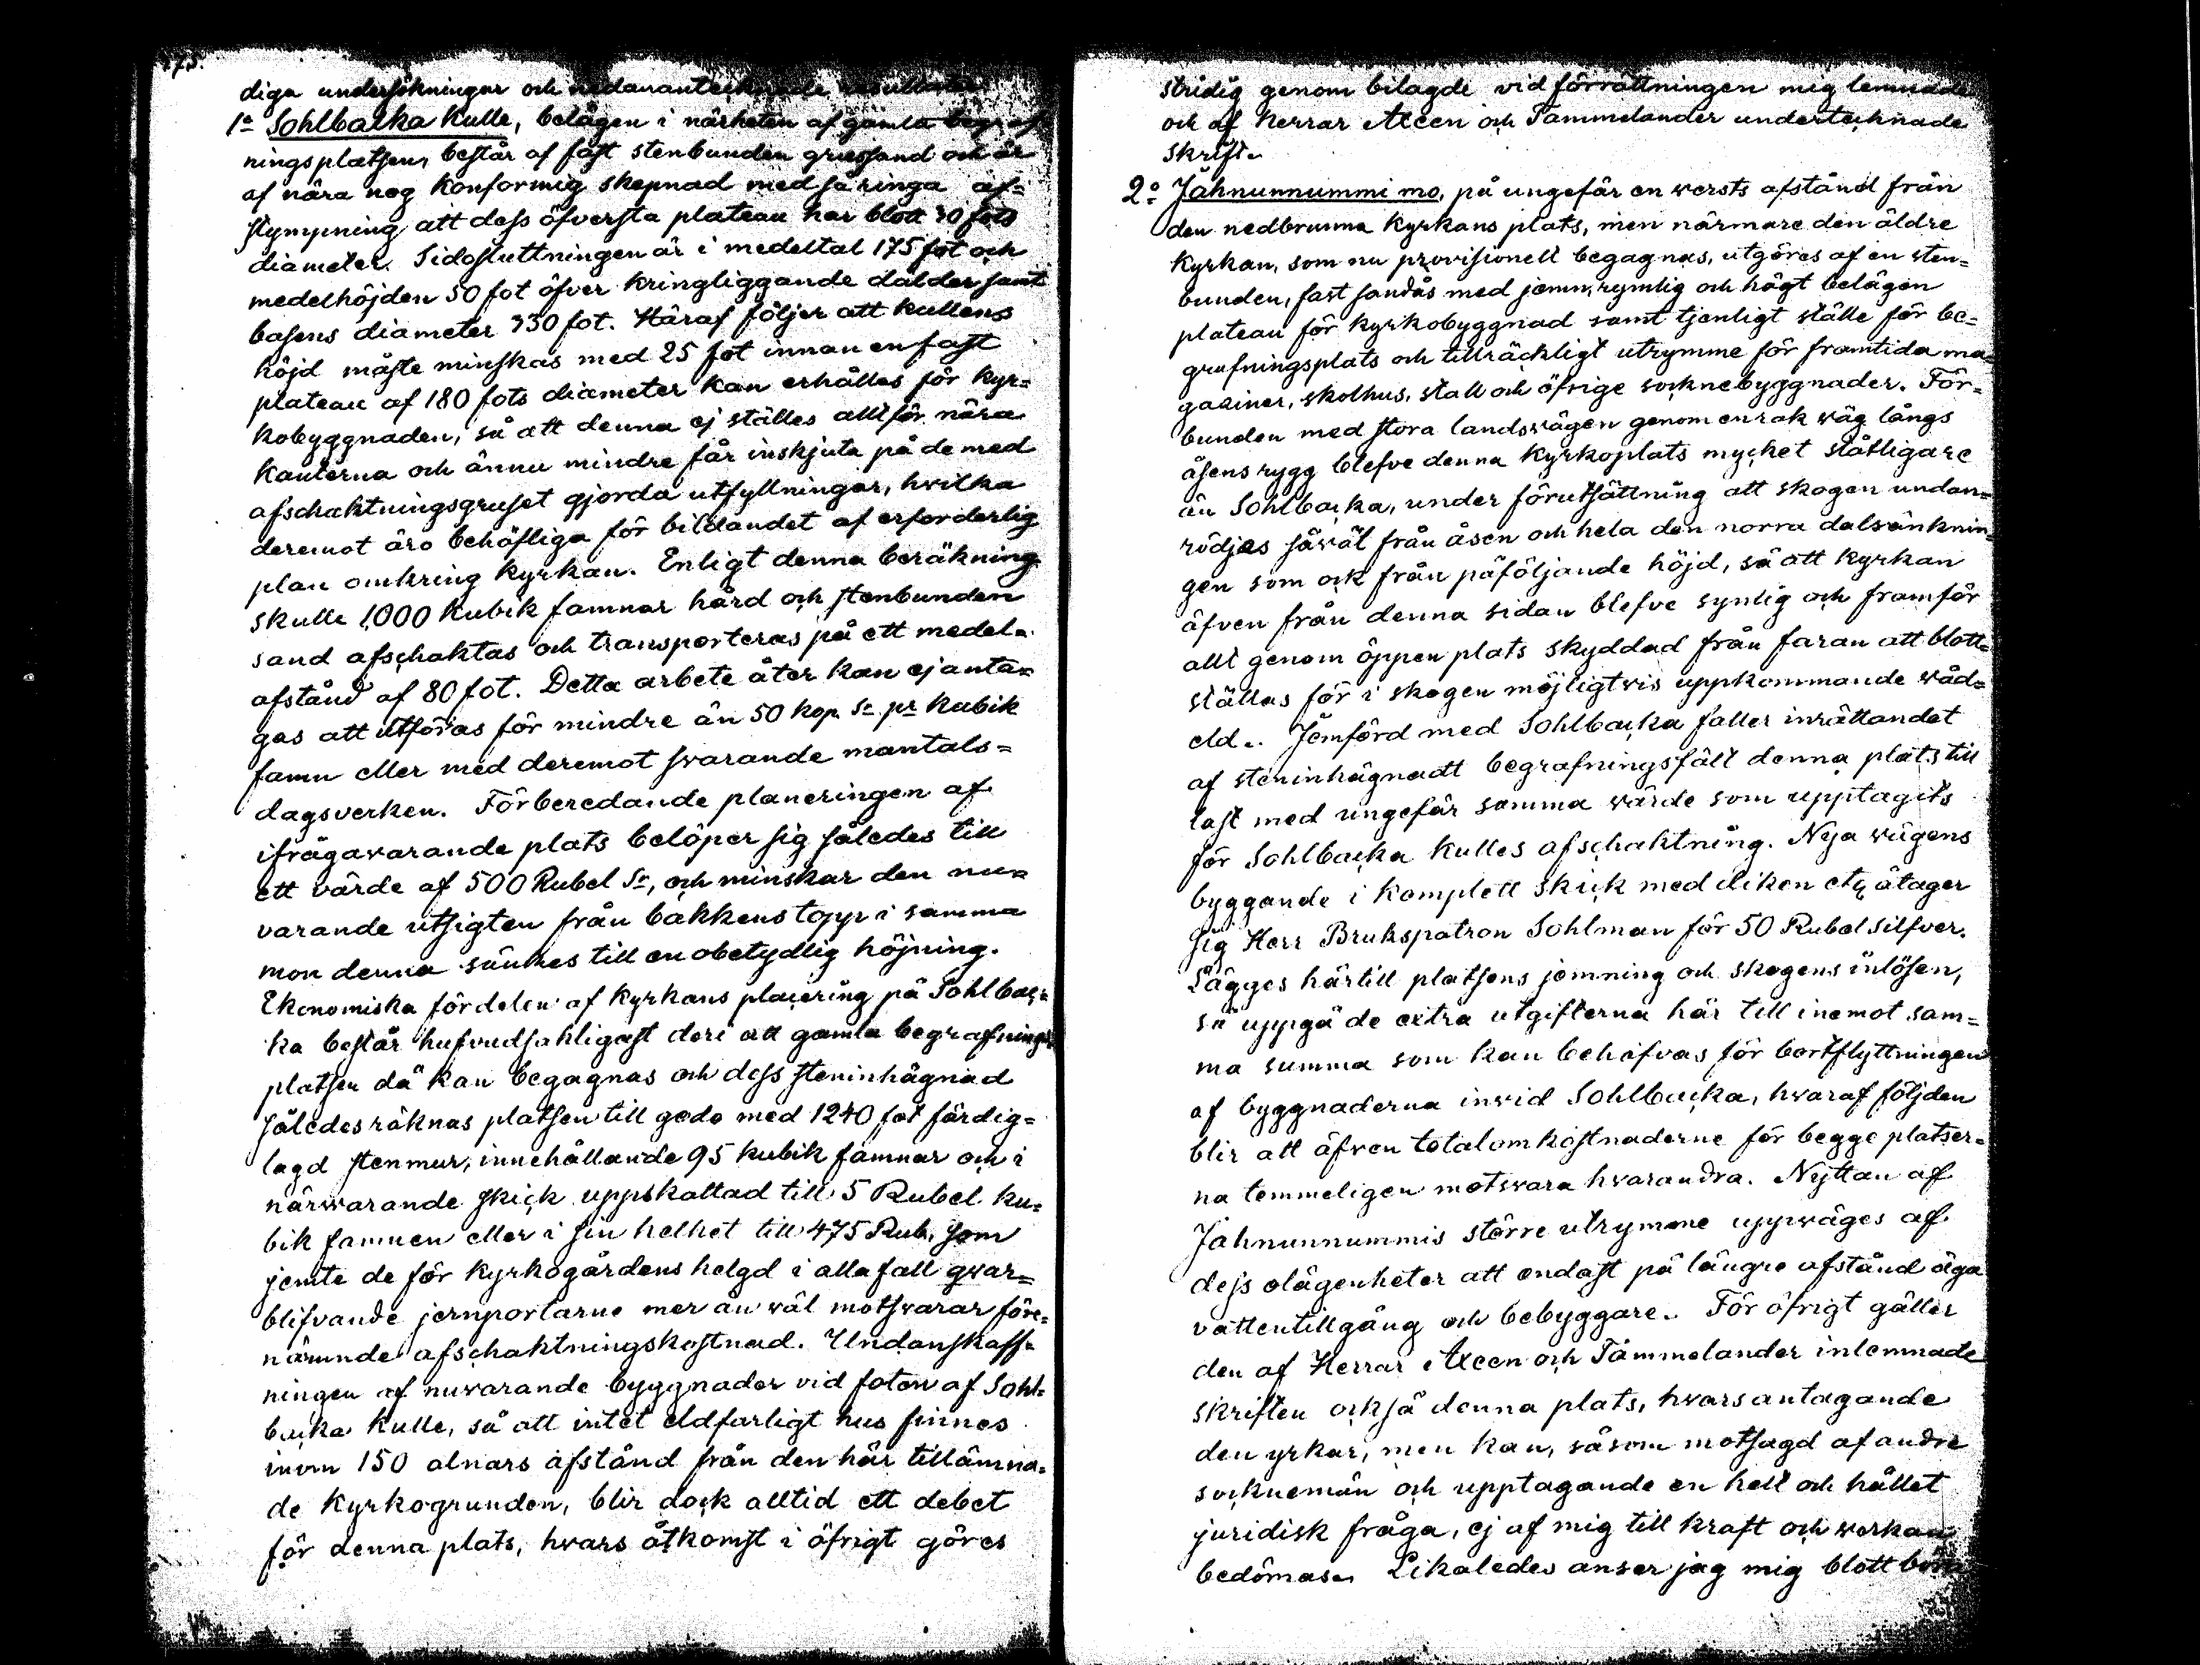 175.
diga undersökningar och nedanantecknade resultater
1º Sohlbacka Kulle, belägen i närheten af gamla begraf
ningsplatsen, består af fast stenbunden grussand och är
af nära nog konformig skepnad med så ringa af=
stympning att dess öfversta plateau har blott 30 fots
diameter. Sidosluttningen är i medeltal 175 fot och
medelhöjden 50 fot öfver kringliggande dälder samt
basens diameter 330 fot. Häraf följer att kullens
höjd måste minskas med 25 fot innan en fast
plateau af 180 fots diameter kan erhålles för kyr=
kobyggnaden, så att denna ej ställes alltför nära
kanterna och ännu mindre får inskjuta på de med
afschaktningsgruset gjorda utfyllningar, hvilka
deremot äro behöfliga för bildandet af erforderlig
plan omkring kyrkan. Enligt denna beräkning
skulle 1,000 Kubik famnar hård och stenbunden
sand afschaktas och transporteras på ett medel=
afstånd af 80 fot. Detta arbete åter kan ej anta=
gas att utföras för mindre än 50 kop. Sr. pr Kubik
famn eller med deremot svarande mantals=
dagsverken. Förberedande planeringen af
ifrågavarande plats belöper sig således till
ett värde af 500 Rubel Sr, och minskar den nu=
varande utsigten från bakkens topp i samma
mon denna sänkes till en obetydlig höjning.
Ekonomiska fördelen af kyrkans placering på Sohlbac=
ka består hufvudsakligast deri att gamla begrafnings
platsen då kan begagnas och dess steninhägnad
således räknas platsen till godo med 1240 fot färdig=
lagd stenmur, innehållande 95 kubik famnar och i
närwarande skick uppskattad till 5 Rubel ku=
bik famnen eller i sin helhet till 475 Rub. som
jemte de för kyrkogårdens helgd i alla fall qvar=
blifvande jernportarne mer än wäl motsvarar före=
nämnde afschaktningskostnad. Undanskaff=
ningen af nuvarande byggnader vid foten af Sohl=
backa kulle, så att intet eldfarligt hus finnes
inom 150 alnars afstånd från den här tillämna=
de kyrkogrunden, blir dock alltid ett debet
för denna plats, hvars åtkomst i öfrigt göres
stridig genom bilagde vid förrättningen mig lemnade
och af Herrar Axeen och Tammelander undertecknade
skrift.
2º Jähnunnummi mo, på ungefär en wersts afstånd från
den nedbrunna kyrkans plats, men närmare den äldre
kyrkan, som nu provisionelt begagnas, utgöres af en sten=
bunden, fast sandås med jemn, rymlig och högt belägen
plateau för kyrkobyggnad samt tjenligt ställe för be=
grafningsplats och tillräckligt utrymme för framtida ma=
gaziner, skolhus, stall och öfrige socknebyggnader. För=
bunden med stora landsvägen genom en rak wäg långs
åsens rygg blefve denna kyrkoplats mycket ståtligare
än Sohlbacka, under förutsättning att skogen undan=
rödjas såväl från åsen och hela den norra dalsänknin=
gen som ock från påföljande höjd, så att kyrkan
äfven från denna sidan blefve synlig och framför
allt genom öppen plats skyddad från faran att blott=
ställas för i skogen möjligtvis uppkommande wåd=
eld. Jemförd med Sohlbacka faller inrättandet
af steninhägnadt begrafningsfält denna plats till
last med ungefär samma värde som upptagits
för Sohlbacka kulles afschaktning. Nya vägens
byggande i komplett skick med diken etc. åtager
sig Herr Brukspatron Sohlman för 50 Rubel Silfver.
Lägges härtill platsens jemning och skogens inlösen,
så uppgå de extra utgifterna här till inemot sam=
ma summa som kan behöfvas för bortflyttningen
af byggnaderna invid Sohlbacka, hwaraf följden
blir att äfven totalomkostnaderne för begge platser=
na temmeligen motsvara hvarandra. Nyttan af
Jahnunnummis större utrymme uppwäges af
dess olägenheter att endast på längre afstånd äga
vattentillgång och bebyggare. För öfrigt gäller
den af Herrar Axeen och Tammelander inlemnade
skriften också denna plats, hvars antagande
den yrkar, men kan, såsom motsagd af andre
sockuemän och upptagande en helt och hållet
juridisk fråga, ej af mig till kraft och werkan
bedömas. Likaledes anser jag mig blott böra